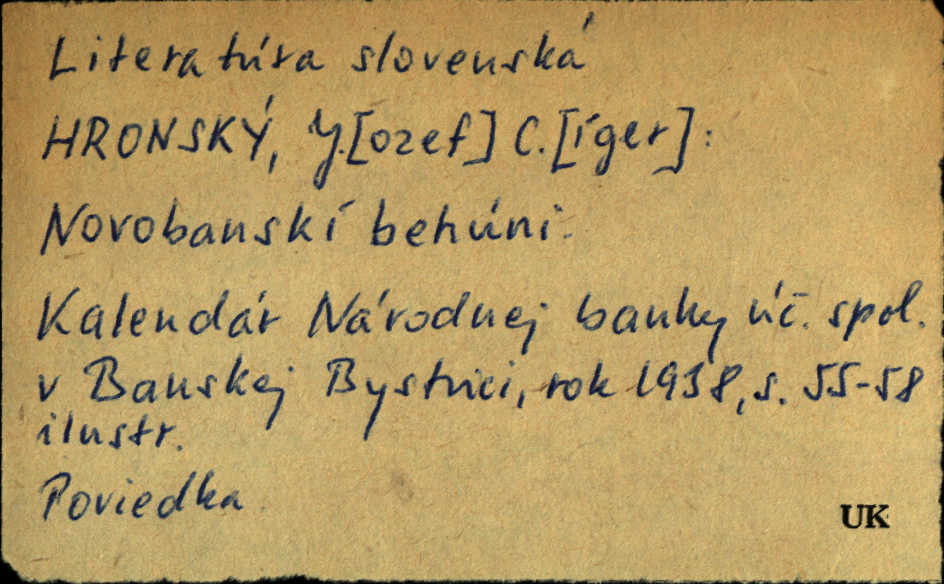 Literatúra slovenská
HRONSKÝ, J.[ozef] C.[íger]:
Novobanskí behúni.
Kalendár Národnej banky úč. spol.
v Banskej Bystrici, rok 1938, s. 55-58
ilustr.
Poviedka
UK